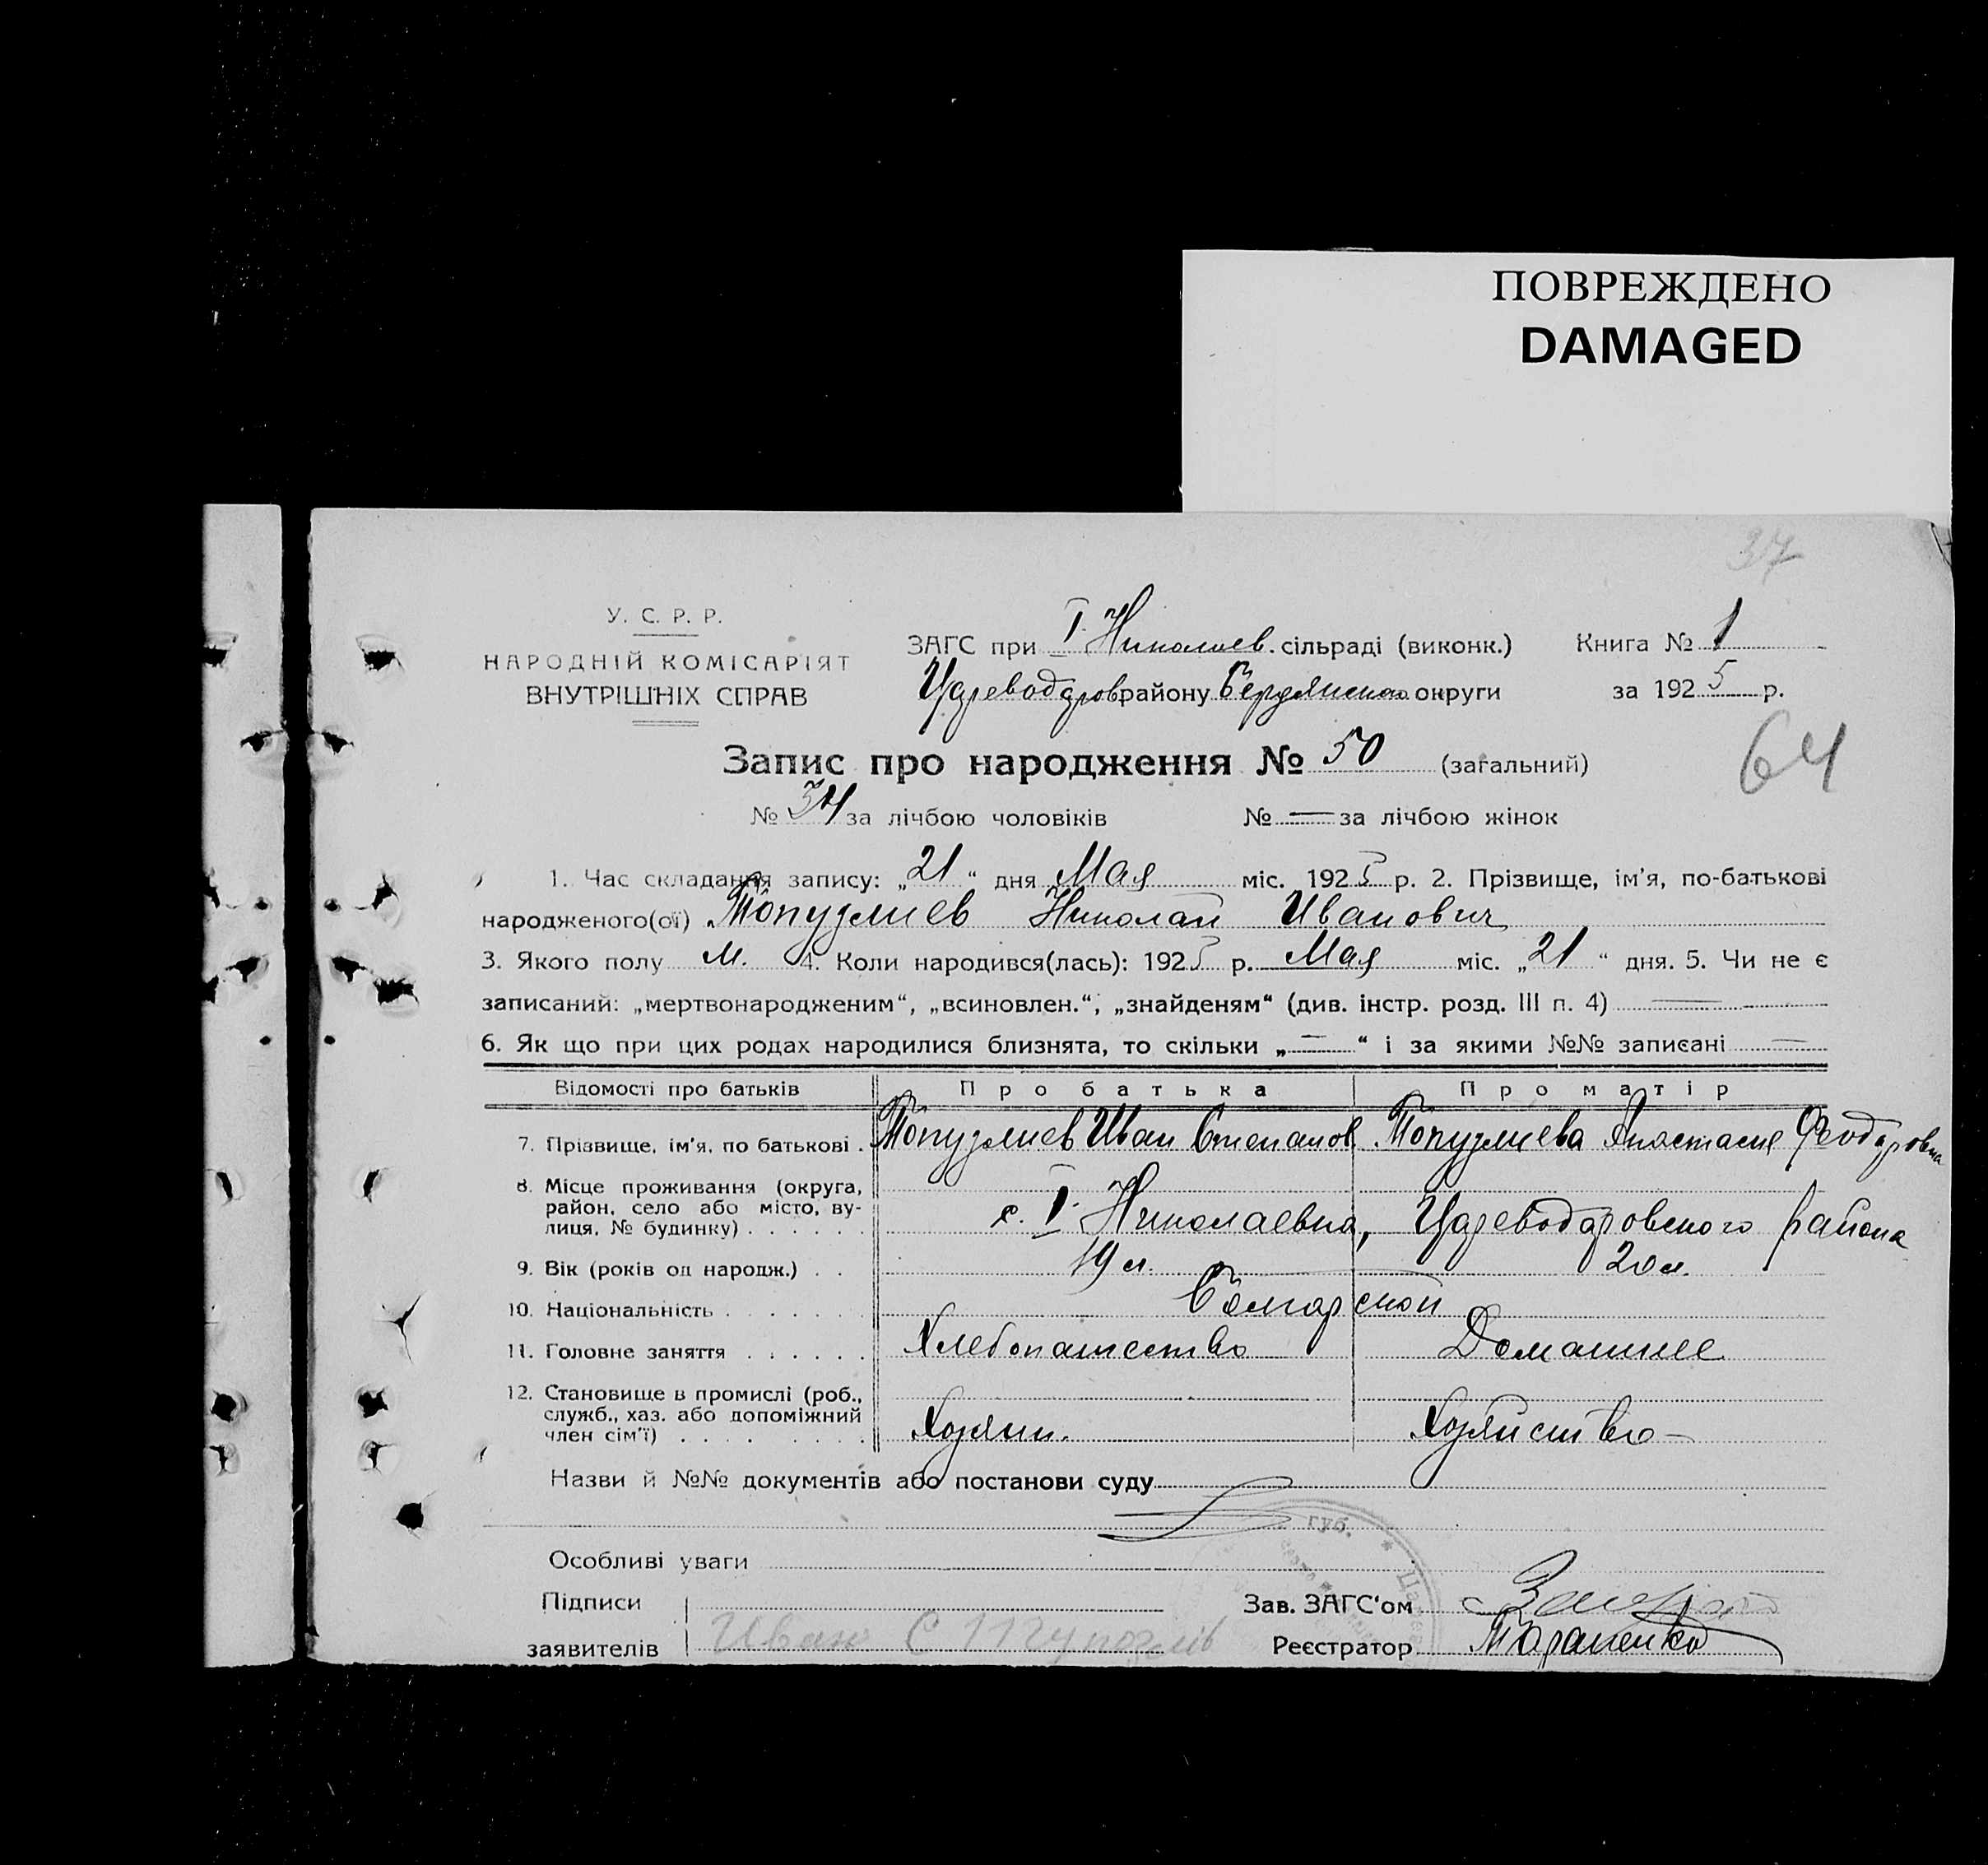 ПОВРЕЖДЕНО
DAMAGED
37
У. С. Р. Р.
НАРОДНІЙ КОМІСАРІЯТ
ВНУТРІШНІХ СПРАВ
ЗАГС при I. Николаев. сільраді (виконк.) Книга № 1
Цареводаров району Бердянской округи за 1925 р.
Запис про народження № 50 (загальний)
64
№ 34 за лічбою чоловіків № — за лічбою жінок
1. Час складання запису: „21“ дня Мая міс. 1925 р. 2. Прізвище, ім'я, по-батькові
народженого(ої) Топузлиев Николай Иванович
3. Якого полу м. 4. Коли народився(лась): 1925 р. Мая міс. „21“ дня. 5. Чи не є
записаний: „мертвонародженим“, „всиновлен.“, „знайденям“ (див. інстр. розд. III п. 4) —
6. Як що при цих родах народилися близнята, то скільки „—“ і за якими №№ записані —
Відомості про батьків Про батька Про матір
7. Прізвище, ім'я, по батькові . Топузлиев Иван Степанов Топузлиева Анастасия Феодоровна
8. Місце проживання (округа,
район, село або місто, ву-
лиця, № будинку) . . . . . . с. I. Николаевка, Цареводаровского района
9. Вік (років од народж.) . . 19 л. 20 л.
10. Національність . . . . . . . Болгарской
11. Головне заняття . . . . . . Хлебопашество Домашнее
12. Становище в промислі (роб.,
служб., хаз. або допоміжний
член сім'ї) . . . . . . . . Хозяин. Хозяйство
Назви й №№ документів або постанови суду
губ.
Особливі уваги
Підписи Зав. ЗАГС'ом
заявителів Иван С Реєстратор Тараненко